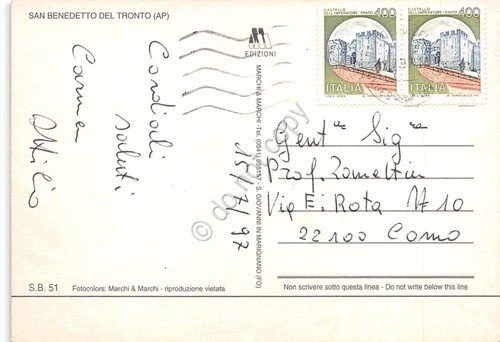 SAN BENEDETTO DEL TRONTO (AP)
EDIZIONI
Cordiali
saluti
Carmen
Attilio
15/7/97
MARCHI & MARCHI - Tel. (0541)
S. GIOVANNI IN MARIGNANO (FO)
CASTELLO DELL'IMPERATORE - PRATO 400
ITALIA
CASTELLO DELL'IMPERATORE - PRATO 400
ITALIA
Gent.me Sig.ra
Prof.
Via E. Rota N 10
22100 Como
S.B. 51
Fotocolors: Marchi & Marchi - riproduzione vietata
Non scrivere sotto questa linea - Do not write below this line